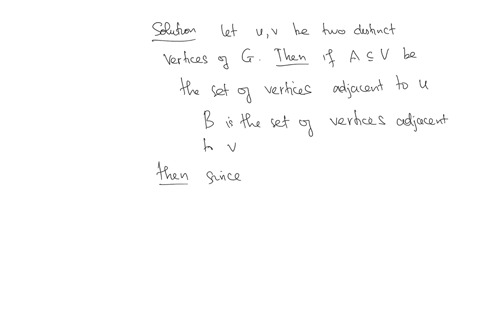 Solution let u, v be two distinct
vertices of G. Then if A ⊆ V be
the set of vertices adjacent to u
B is the set of vertices adjacent
to v
then since